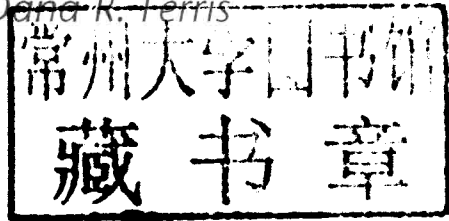 Dana R. Ferris
常州大学图书馆
藏书章